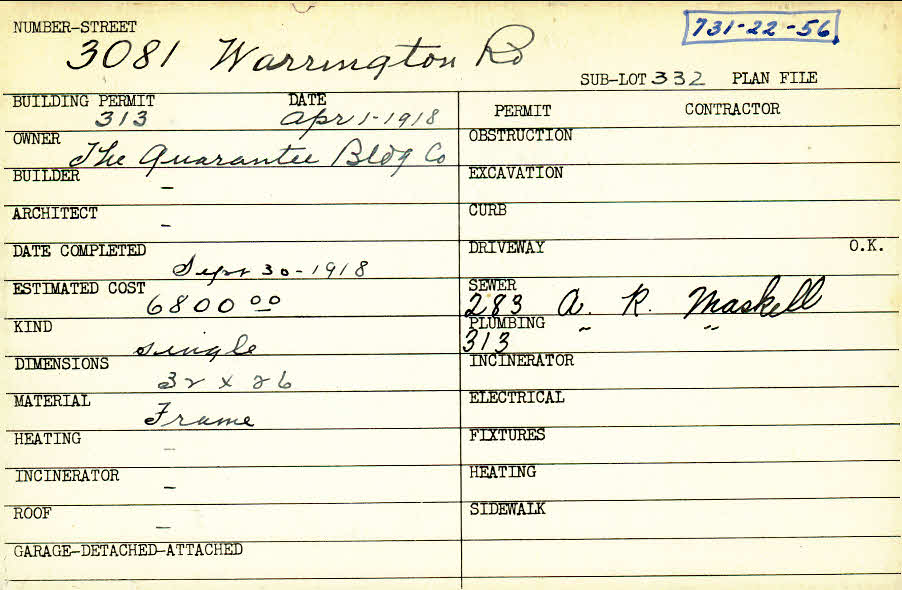 NUMBER-STREET
3081 Warrington Rd
731-22-56
SUB-LOT 332 PLAN FILE
BUILDING PERMIT DATE
313 Apr 1-1918
OWNER
The Guarantee Bldg Co
BUILDER
-
ARCHITECT
-
DATE COMPLETED
Sept 30-1918
ESTIMATED COST
6800 00
KIND
single
DIMENSIONS
32 x 26
MATERIAL
Frame
HEATING
-
INCINERATOR
-
ROOF
-
GARAGE-DETACHED-ATTACHED
PERMIT CONTRACTOR
OBSTRUCTION
EXCAVATION
CURB
DRIVEWAY O.K.
SEWER
283 A. R. Maskell
PLUMBING " "
313
INCINERATOR
ELECTRICAL
FIXTURES
HEATING
SIDEWALK